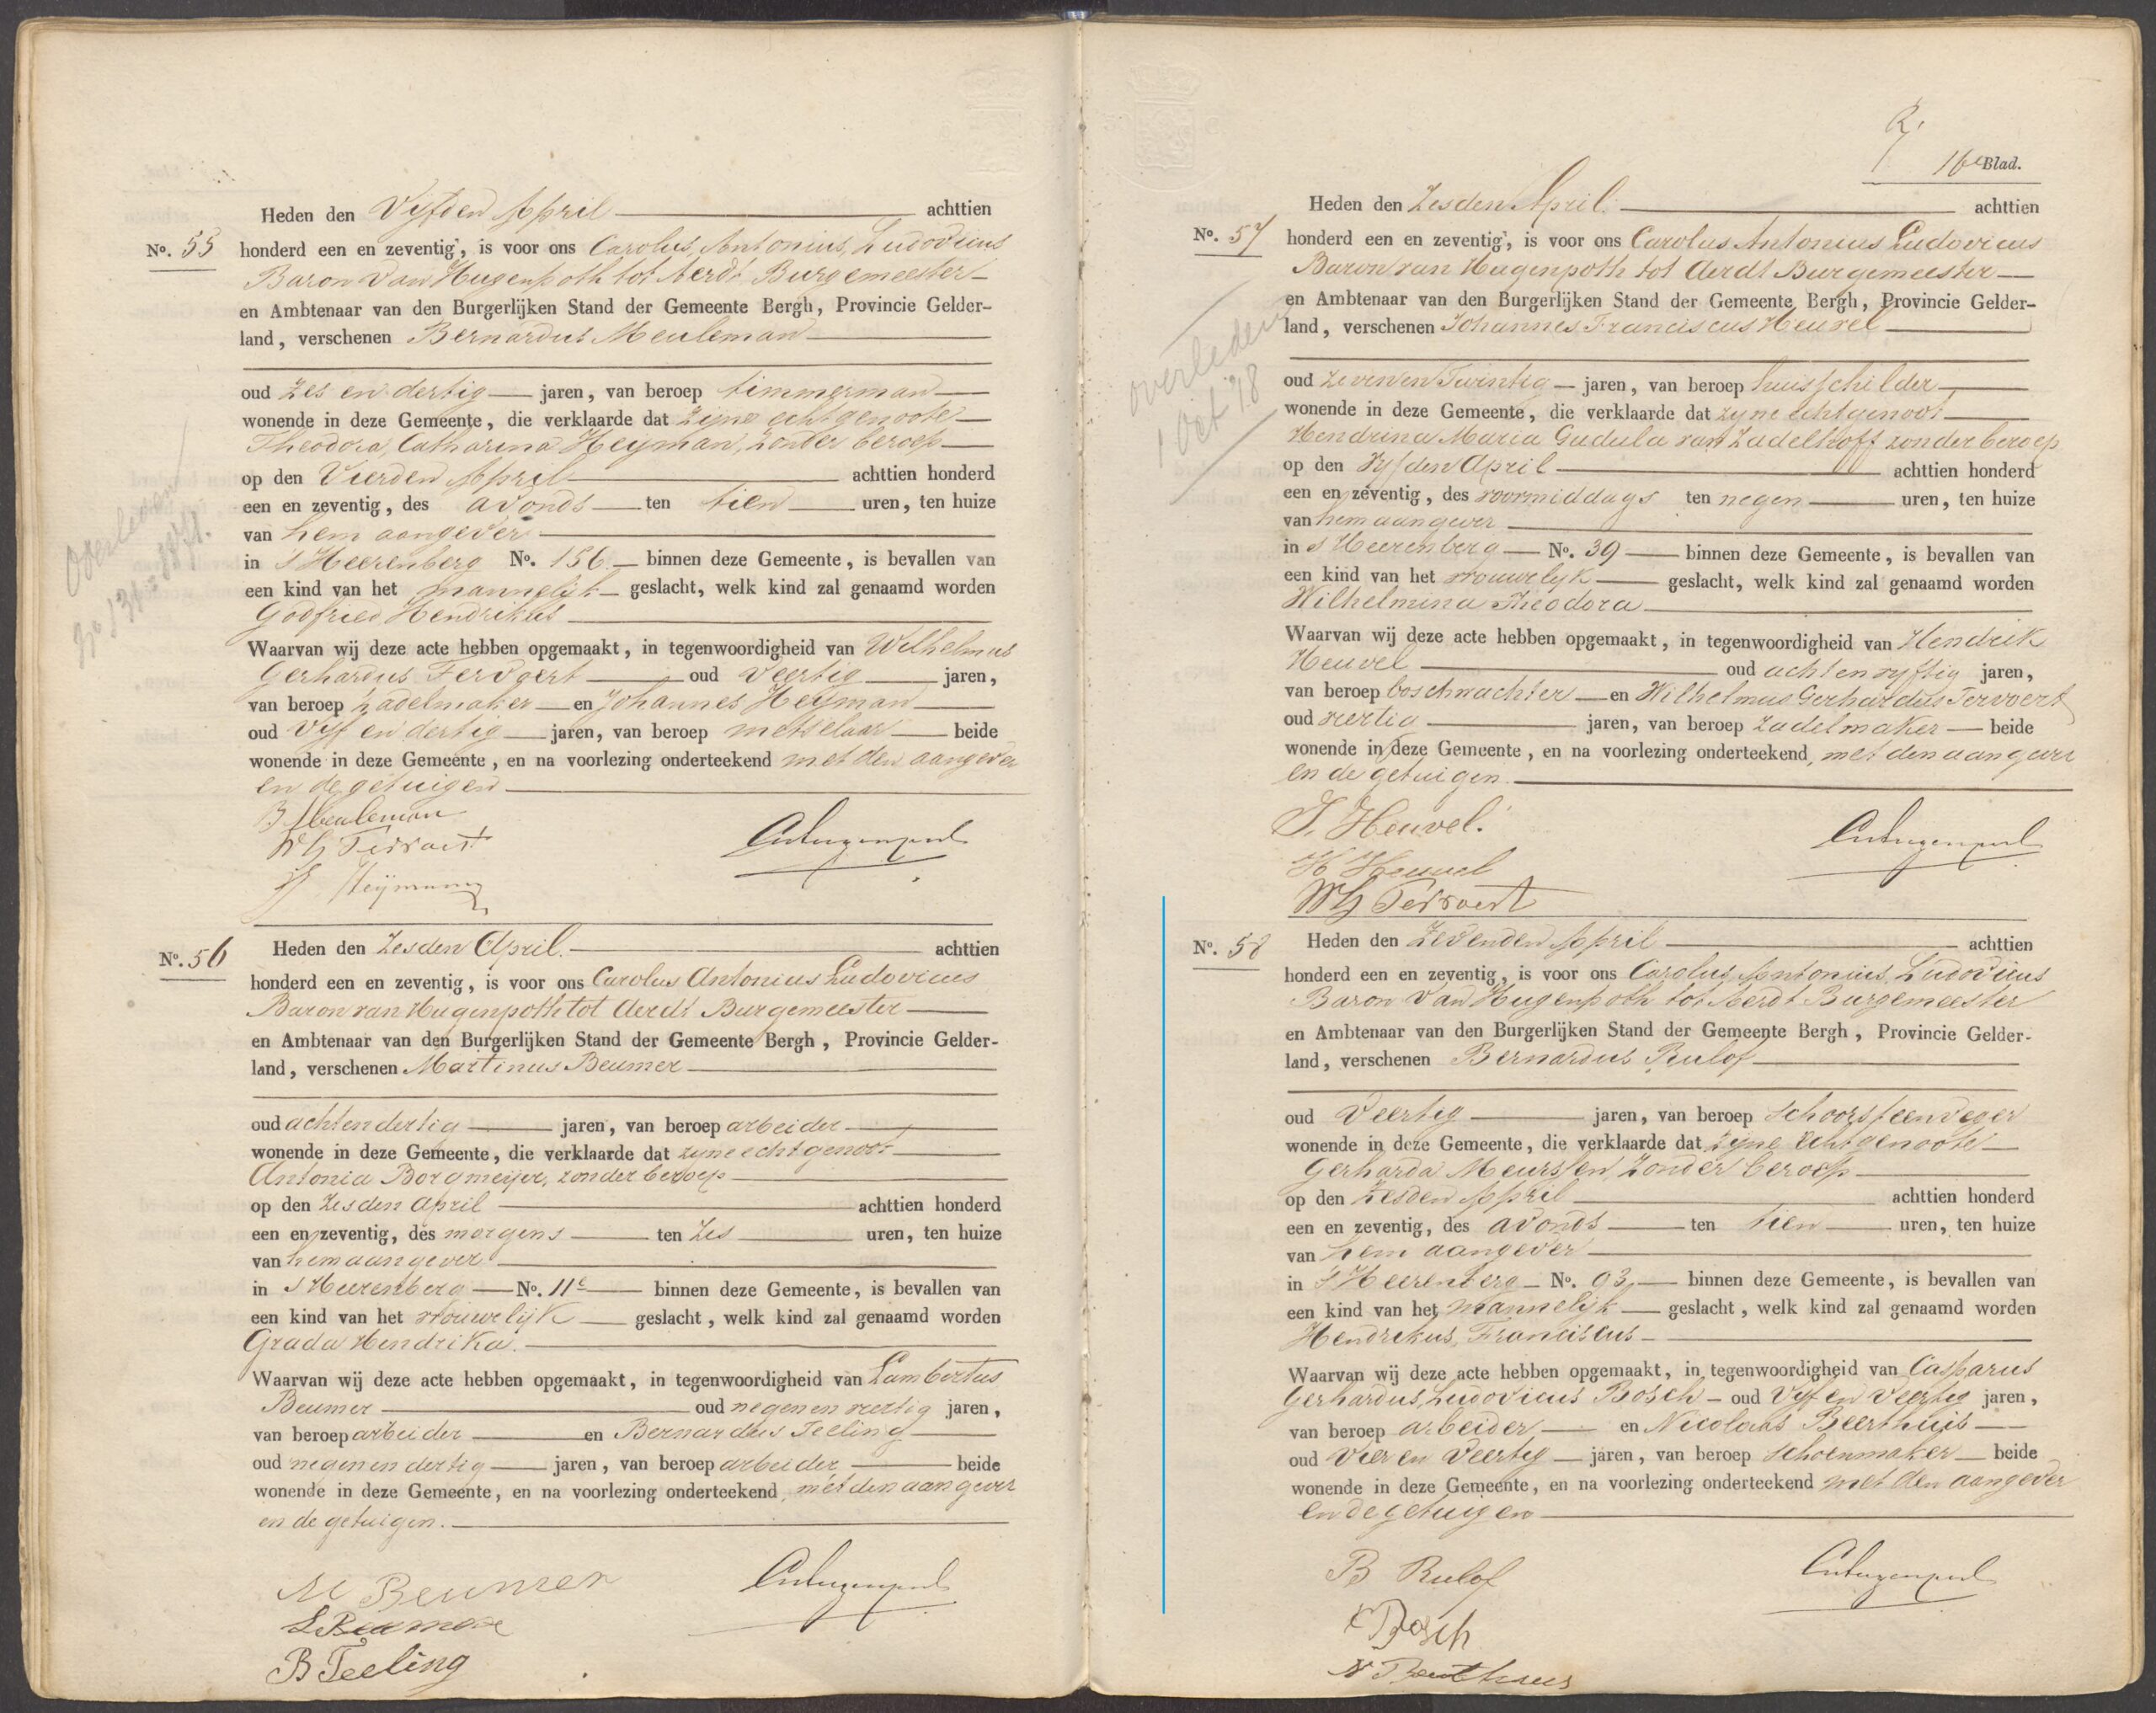 Heden den Vijfden April achttien
No. 55 honderd een en zeventig, is voor ons Carolus, Antonius, Ludovicus
Baron van Hugenpoth tot Aerdt Burgemeester
en Ambtenaar van den Burgerlijken Stand der Gemeente Bergh, Provincie Gelder-
land, verschenen Bernardus Meuleman
oud zes en dertig jaren, van beroep timmerman
wonende in deze Gemeente, die verklaarde dat zijne echtgenoote
Theodora, Catharina Heyman, zonder beroep
op den Vierden April achttien honderd
een en zeventig, des avonds ten tien uren, ten huize
van hem aangever
in 's Heerenberg No. 156. binnen deze Gemeente, is bevallen van
een kind van het mannelijk geslacht, welk kind zal genaamd worden
Godfried Hendrikus
Waarvan wij deze acte hebben opgemaakt, in tegenwoordigheid van Wilhelmus
Gerhardus Tervoert oud veertig jaren,
van beroep zadelmaker en Johannes Heyman
oud vijf en dertig jaren, van beroep metselaar beide
wonende in deze Gemeente, en na voorlezing onderteekend met den aangever
en de getuigen
B Meuleman
WG Tervoert
Heijman
Overleden
No. 56 Heden den Zesden April. achttien
honderd een en zeventig, is voor ons Carolus Antonius Ludovicus
Baron van Hugenpoth tot Aerdt Burgemeester
en Ambtenaar van den Burgerlijken Stand der Gemeente Bergh, Provincie Gelder-
land, verschenen Martinus Beumer
oud acht en dertig jaren, van beroep arbeider
wonende in deze Gemeente, die verklaarde dat zyne echtgenoot
Antonia Borgmeijer, zonder beroep
op den zesden april achttien honderd
een en zeventig, des morgens ten zes uren, ten huize
van hem aangever
in s Heerenberg No. 11c binnen deze Gemeente, is bevallen van
een kind van het vrouwelijk geslacht, welk kind zal genaamd worden
Grada Hendrika.
Waarvan wij deze acte hebben opgemaakt, in tegenwoordigheid van Lambertus
Beumer oud negen en veertig jaren,
van beroep arbeider en Bernardus Teeling
oud negen en dertig jaren, van beroep arbeider beide
wonende in deze Gemeente, en na voorlezing onderteekend, met den aangever
en de getuigen.
M Beumer
L Beumer
B Teeling
16e Blad.
Heden den Zesden April. achttien
No. 57 honderd een en zeventig, is voor ons Carolus Antonius Ludovicus
Baron van Hugenpoth tot Aerdt Burgemeester
en Ambtenaar van den Burgerlijken Stand der Gemeente Bergh, Provincie Gelder-
land, verschenen Johannes Franciscus Heuvel
oud zeven en twintig jaren, van beroep huisschilder
wonende in deze Gemeente, die verklaarde dat zyne echtgenoot
Hendrina Maria Gudula van Zadelhoff zonder beroep
op den Vyfden April achttien honderd
een en zeventig, des voormiddags ten negen uren, ten huize
van hem aangever
in s Heerenberg No. 39 binnen deze Gemeente, is bevallen van
een kind van het vrouwelyk geslacht, welk kind zal genaamd worden
Wilhelmina Theodora
Waarvan wij deze acte hebben opgemaakt, in tegenwoordigheid van Hendrik
Heuvel oud acht en vyftig jaren,
van beroep boschwachter en Wilhelmus Gerhardus Tervoert
oud veertig jaren, van beroep zadelmaker beide
wonende in deze Gemeente, en na voorlezing onderteekend, met den aangever
en de getuigen.
J. Heuvel.
H Heuvel
WG Tervoert
overleden
1 Oct '78
No. 58 Heden den Zevenden April achttien
honderd een en zeventig, is voor ons Carolus, Antonius, Ludovicus
Baron van Hugenpoth tot Aerdt Burgemeester
en Ambtenaar van den Burgerlijken Stand der Gemeente Bergh, Provincie Gelder-
land, verschenen Bernardus Rulof
oud veertig jaren, van beroep schoorsteenveger
wonende in deze Gemeente, die verklaarde dat zijne echtgenoote
Gerharda Meurssen, zonder beroep
op den Zesden April achttien honderd
een en zeventig, des avonds ten tien uren, ten huize
van hem aangever
in 's Heerenberg No. 93, binnen deze Gemeente, is bevallen van
een kind van het mannelijk geslacht, welk kind zal genaamd worden
Hendrikus, Franciscus
Waarvan wij deze acte hebben opgemaakt, in tegenwoordigheid van Casparus
Gerhardus, Ludovicus Bosch oud vijf en veertig jaren,
van beroep arbeider en Nicolaas Beerthuis
oud vier en veertig jaren, van beroep schoenmaker beide
wonende in deze Gemeente, en na voorlezing onderteekend met den aangever
en de getuigen
B Rulof
C Bosch
N Beerthuis